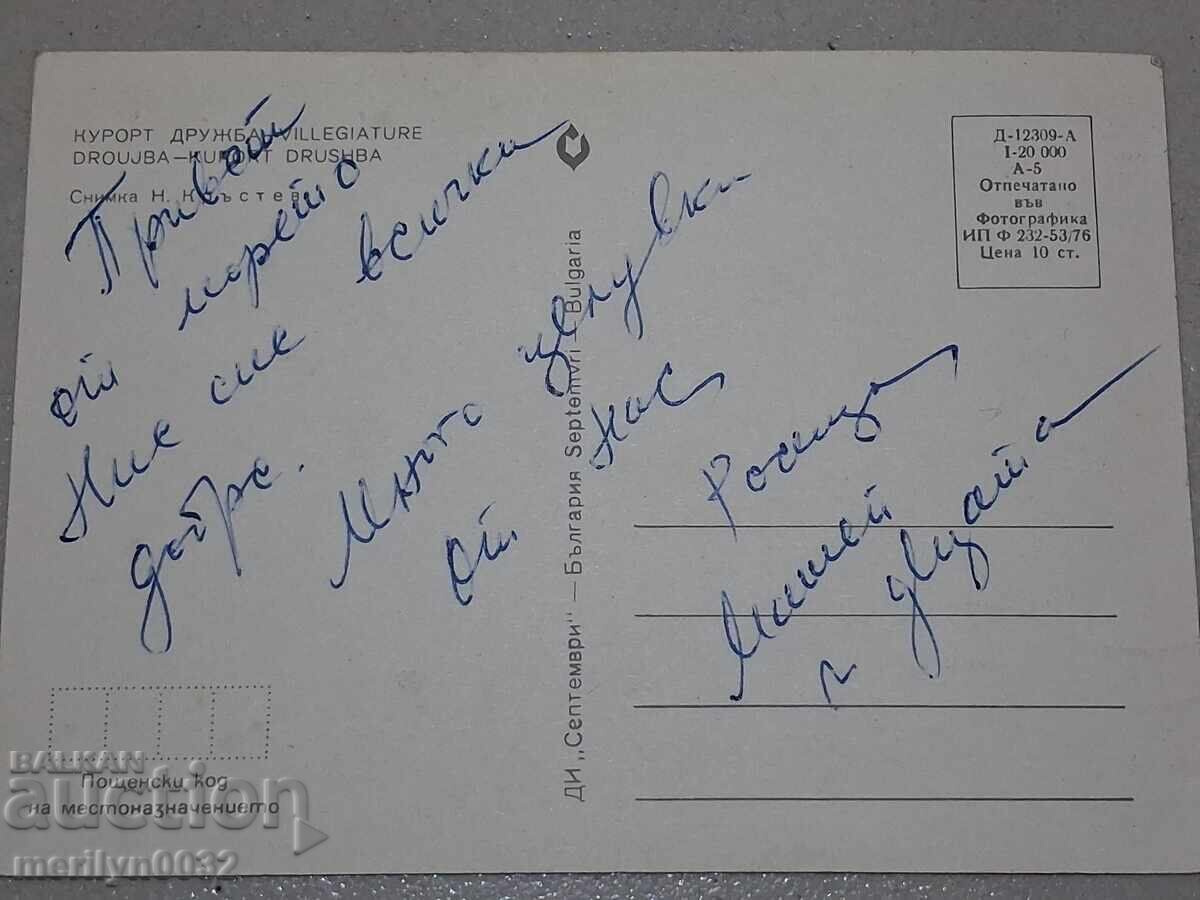 КУРОРТ ДРУЖБА VILLEGIATURE
DROUJBA—KURORT DRUSHBA
Снимка Н. Кръстев
Привет
от морето
Ние сме всички
добре.
Много целувки
от нас
Росица
Мишей
и децата
ДИ „Септември" — България Septemvri — Bulgaria
Д-12309-А
I-20 000
А-5
Отпечатано
във
Фотографика
ИП Ф 232-53/76
Цена 10 ст.
Пощенски код
на местоназначението
BALKAN
auction
merilyn0032